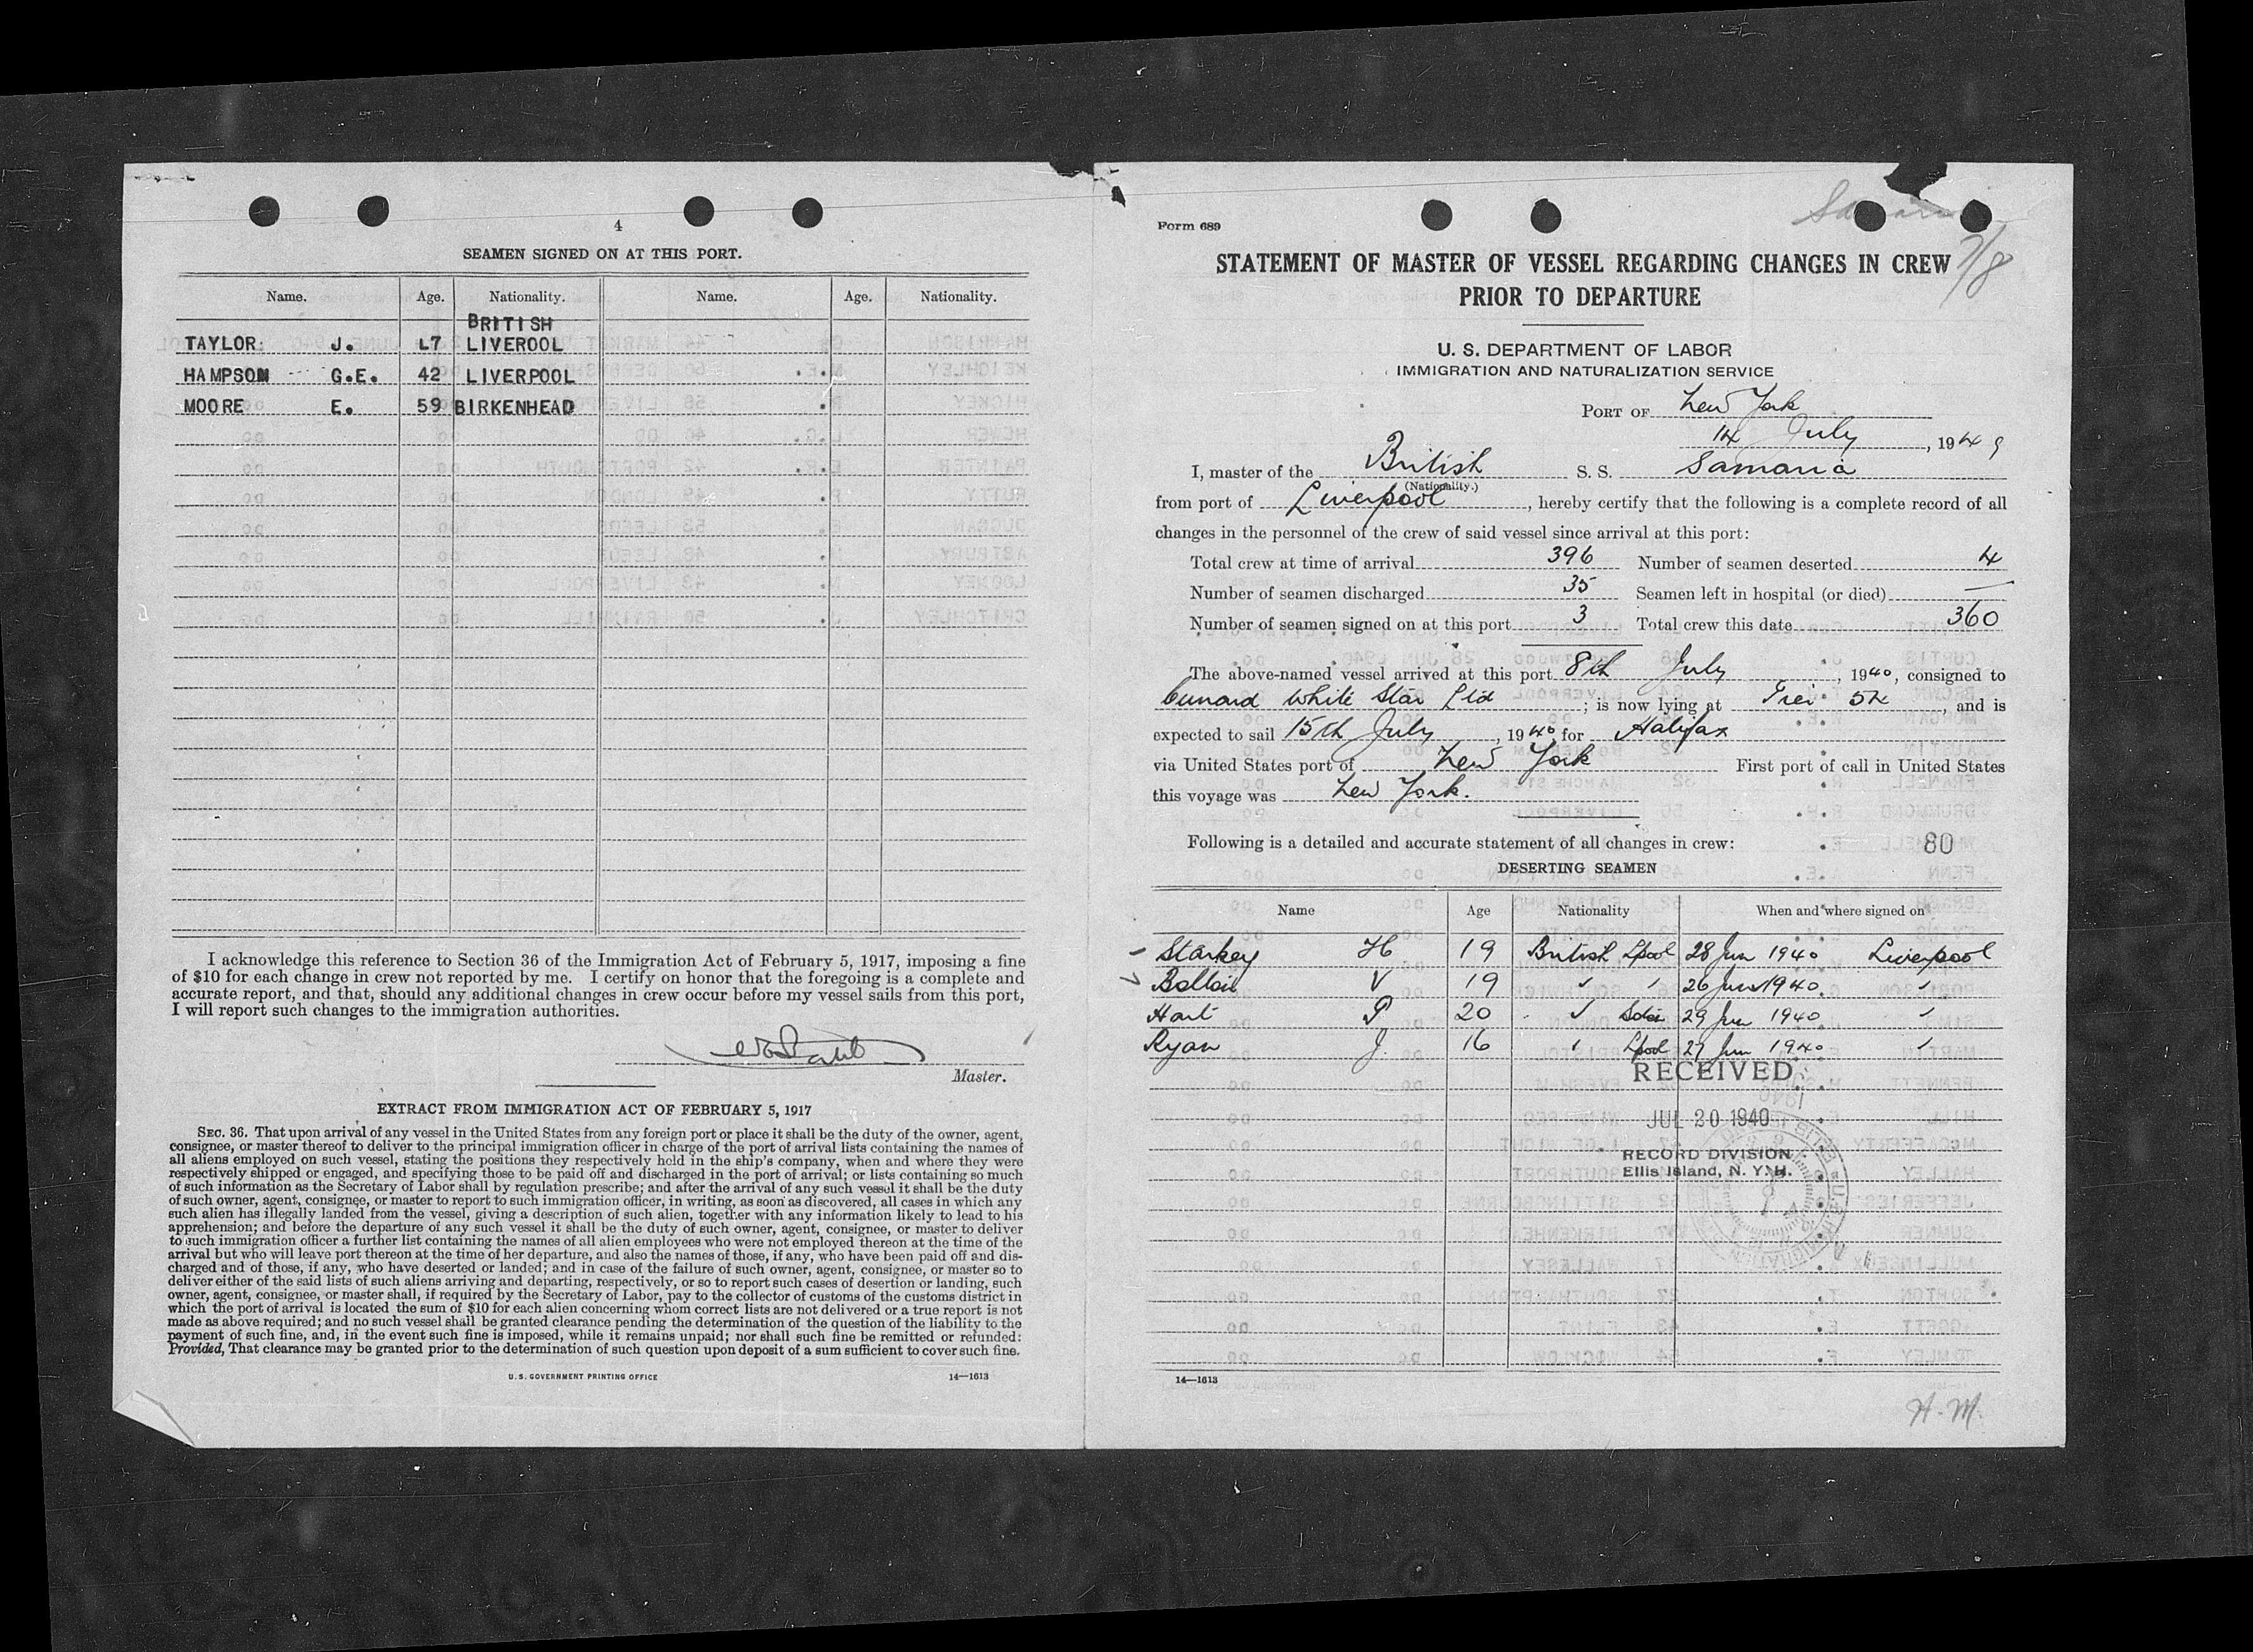 4
SEAMEN SIGNED ON AT THIS PORT.
Name. Age. Nationality. Name. Age. Nationality.
BRITISH
TAYLOR J. 47 LIVEROOL
HAMPSON G.E. 42 LIVERPOOL
MOORE E. 59 BIRKENHEAD
I acknowledge this reference to Section 36 of the Immigration Act of February 5, 1917, imposing a fine
of $10 for each change in crew not reported by me. I certify on honor that the foregoing is a complete and
accurate report, and that, should any additional changes in crew occur before my vessel sails from this port,
I will report such changes to the immigration authorities.
Master.
EXTRACT FROM IMMIGRATION ACT OF FEBRUARY 5, 1917
SEC. 36. That upon arrival of any vessel in the United States from any foreign port or place it shall be the duty of the owner, agent,
consignee, or master thereof to deliver to the principal immigration officer in charge of the port of arrival lists containing the names of
all aliens employed on such vessel, stating the positions they respectively held in the ship's company, when and where they were
respectively shipped or engaged, and specifying those to be paid off and discharged in the port of arrival; or lists containing so much
of such information as the Secretary of Labor shall by regulation prescribe; and after the arrival of any such vessel it shall be the duty
of such owner, agent, consignee, or master to report to such immigration officer, in writing, as soon as discovered, all cases in which any
such alien has illegally landed from the vessel, giving a description of such alien, together with any information likely to lead to his
apprehension; and before the departure of any such vessel it shall be the duty of such owner, agent, consignee, or master to deliver
to such immigration officer a further list containing the names of all alien employees who were not employed thereon at the time of the
arrival but who will leave port thereon at the time of her departure, and also the names of those, if any, who have been paid off and dis-
charged and of those, if any, who have deserted or landed; and in case of the failure of such owner, agent, consignee, or master so to
deliver either of the said lists of such aliens arriving and departing, respectively, or so to report such cases of desertion or landing, such
owner, agent, consignee, or master shall, if required by the Secretary of Labor, pay to the collector of customs of the customs district in
which the port of arrival is located the sum of $10 for each alien concerning whom correct lists are not delivered or a true report is not
made as above required; and no such vessel shall be granted clearance pending the determination of the question of the liability to the
payment of such fine, and, in the event such fine is imposed, while it remains unpaid; nor shall such fine be remitted or refunded:
Provided, That clearance may be granted prior to the determination of such question upon deposit of a sum sufficient to cover such fine.
U. S. GOVERNMENT PRINTING OFFICE 14—1613
Form 689
7/8
STATEMENT OF MASTER OF VESSEL REGARDING CHANGES IN CREW
PRIOR TO DEPARTURE
U. S. DEPARTMENT OF LABOR
IMMIGRATION AND NATURALIZATION SERVICE
PORT OF New York
14 July, 194
I, master of the British S. S. Samaria
(Nationality.)
from port of Liverpool, hereby certify that the following is a complete record of all
changes in the personnel of the crew of said vessel since arrival at this port:
Total crew at time of arrival 396 Number of seamen deserted 4
Number of seamen discharged 35 Seamen left in hospital (or died) —
Number of seamen signed on at this port 3 Total crew this date 360
The above-named vessel arrived at this port 8th July, 1940, consigned to
Cunard White Star Ltd; is now lying at Pier 54, and is
expected to sail 15th July, 1940 for Halifax
via United States port of New York First port of call in United States
this voyage was New York.
Following is a detailed and accurate statement of all changes in crew: 80
DESERTING SEAMEN
Name Age Nationality When and where signed on
Starkey H 19 British Lpool 28 Jun 1940 Liverpool
V 19 " " 26 Jun 1940 "
Hart P 20 " 29 Jun 1940 "
Ryan J. 16 " Lpool 27 Jun 1940 "
RECEIVED
JUL 20 1940
RECORD DIVISION
Ellis Island, N. Y. H.
14—1613
H. M.